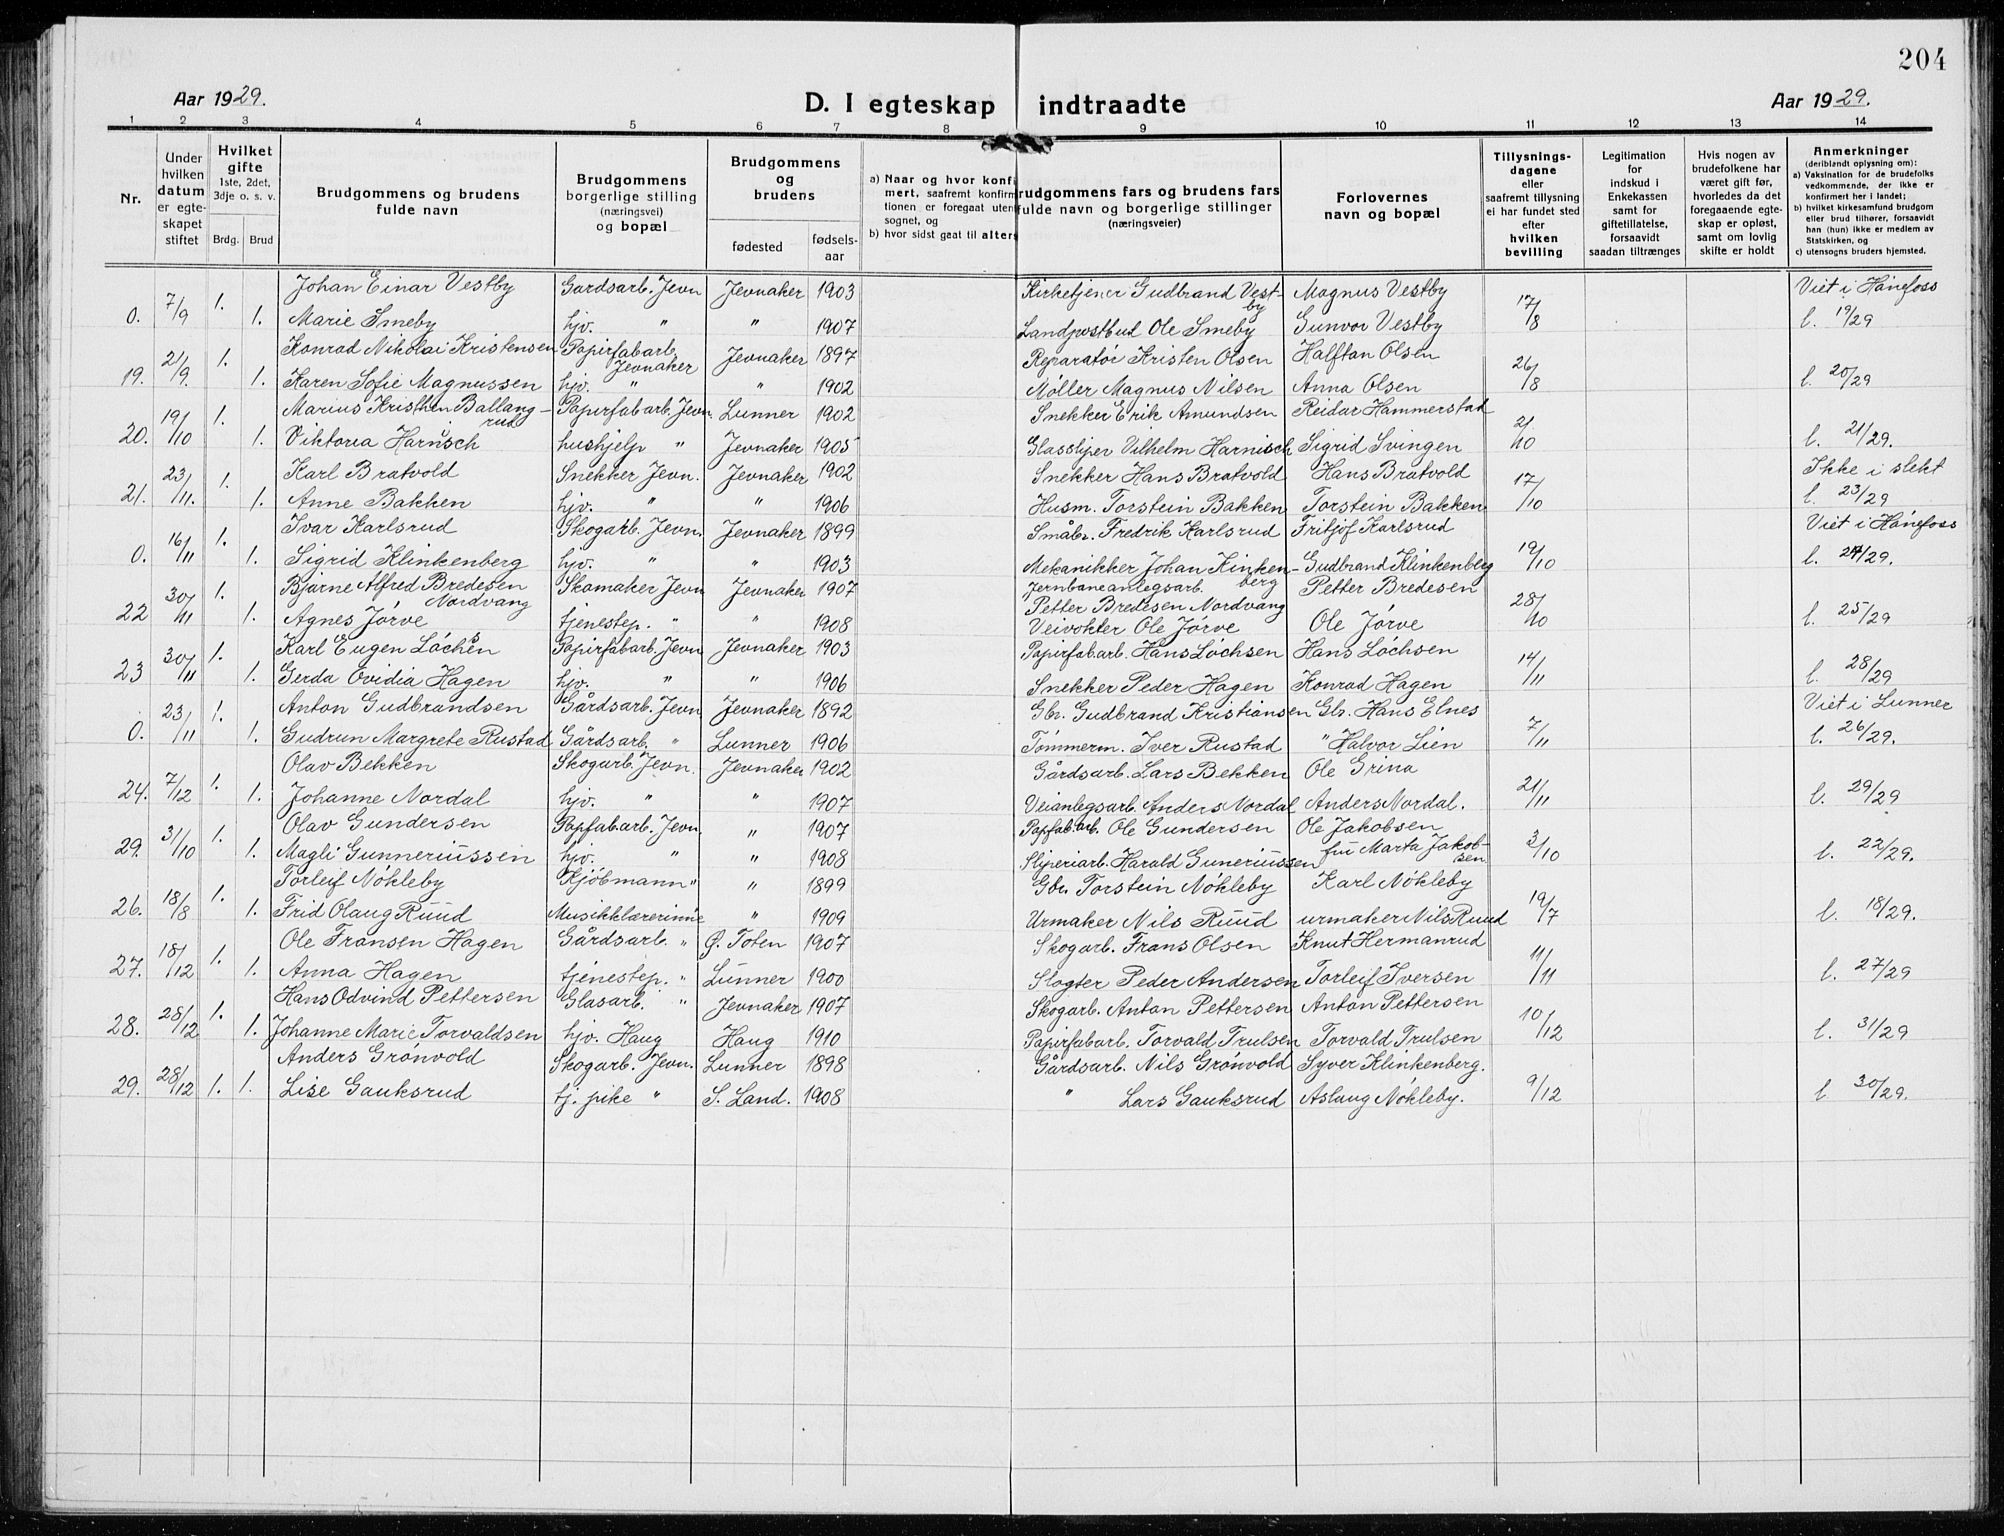 204
Aar 1929. D. I egteskap indtraadte Aar 1929.
1 2 3 4 5 6 7 8 9 10 11 12 13 14
Nr.
Under hvilken datum er egteskapet stiftet
Hvilket gifte 1ste, 2det, 3dje o. s. v.
Brdg. Brud
Brudgommens og brudens fulde navn
Brudgommens borgerlige stilling (næringsvei) og bopæl
Brudgommens og brudens
fødested fødsels-aar
a) Naar og hvor konfi
mert, saafremt konfirm
tionen er foregaat uten
sognet, og
b) hvor sidst gaat til alters
rudgommens fars og brudens fars
fulde navn og borgerlige stillinger
(næringsveier)
Forlovernes navn og bopæl
Tillysnings-dagene eller saafremt tillysning ei har fundet sted efter hvilken bevilling
Legitimation for indskud i Enkekassen samt for giftetillatelse, forsaavidt saadan tiltrænges
Hvis nogen av brudefolkene har været gift før, hvorledes da det foregaaende egteskap er opløst, samt om lovlig skifte er holdt
Anmerkninger
(deriblandt oplysning om):
a) Vaksination for de brudefolks vedkommende, der ikke er konfirmert her i landet;
b) hvilket kirkesamfund brudgom eller brud tilhører, forsaavidt han (hun) ikke er medlem av Statskirken, og
c) utensogns bruders hjemsted.
0. 7/9 1. Johan Einar Vestby Gardsarb. Jevn Jevnaker 1903 Kirketjener Gudbrand Vestby Magnus Vestby 17/8 Viet i Hønefoss
1. Marie Smeby hjv. " " 1907 Landpostbud Ole Smeby Gunvor Vestby l. 19/29
19. 21/9. 1. Konrad Nikolai Kristensen Papirfabarb. Jevnaker Jevnaker 1897 Reparatør Kristen Olsen Halftan Olsen 26/8
1. Karen Sofie Magnussen hjv. " " 1902 Møller Magnus Nilsen Anna Olsen l. 20/29
20. 19/10 1. Marius Kristhen Ballangrud Papirfabarb. Jevn. Lunner 1902 Snekker Erik Amundsen Reidar Hammerstad 2/10
1. Viktoria Harnisch hushjelp " Jevnaker 1905 Glassliper Vilhelm Harnisch Sigrid Svingen l. 21/29.
21. 23/11. 1. Karl Bratvold Snekker Jevn. Jevnaker 1902 Snekker Hans Bratvold Hans Bratvold 17/10 Ikke i slekt
1. Anne Bakken hjv. " " 1906 Husm. Torstein Bakken Torstein Bakken l. 23/29
0. 16/11 1. Ivar Karlsrud Skogarb. Jevn. Jevnaker 1899 Småbr. Fredrik Karlsrud Fritjof Karlsrud 19/10 Viet i Hønefoss
1. Sigrid Klinkenberg hjv. " " 1903 Mekanikker Johan Kinkenberg Gudbrand Klinkenberg l. 24/29.
22 30/11 1. Bjarne Alfred Bredesen Nordvang Skomaker Jevn Jevnaker 1907 Jernbaneanlegsarb. Petter Bredesen Nordvang Petter Bredesen 28/10
1. Agnes Jørve tjenestep. " " 1908 Veivokter Ole Jørve Ole Jørve l. 25/29
23 30/11 1. Karl Eugen Lóchsén Papirfabarb. Jevn Jevnaker 1903 Papirfabarb. Hans Lóchsen Hans Lóchsen 14/11
1. Gerda Ovidia Hagen hjv. " " 1906 Snekker Peder Hagen Konrad Hagen l. 28/29
0. 23/11 1. Anton Gudbrandsen Gårdsarb. Jevn Jevnaker 1892 Gbr. Gudbrand Kristiansen Gbr. Hans Elnes 7/11 Viet i Lunner
1. Gudrun Margrete Rustad Gårdsarb. " Lunner 1906 Tømmerm. Iver Rustad " Halvor Lien l. 26/29.
24. 7/12 1. Olav Bekken Skogarb. Jevn. Jevnaker 1902 Gårdsarb. Lars Bekken Ole Grina 21/11
1. Johanne Nordal hjv. " " 1907 Veianlegsarb. Anders Nordal Anders Nordal. l. 29/29
29. 31/10 1. Olav Gundersen Papfabarb. Jevn. " 1907 Papfab.arb. Ole Gundersen Ole Jakobsen 3/10
1. Magli Gunneriussen hjv. " " 1908 Sliperiarb. Harald Guneriussen fru Marta Jakobsen l. 22/29.
26. 18/8 1. Torleif Nökleby Kjöbmann " " 1899 Gbr. Torstein Nökleby Karl Nökleby 19/7
1. Frid Olaug Ruud Musikklærerinne " 1909 Urmaker Nils Ruud urmaker Nils Ruud l. 18/29.
27. 18/12 1. Ole Fransen Hagen Gårdsarb. " Ø. Toten 1907 Skogarb. Frans Olsen Knut Hermanrud 11/11
1. Anna Hagen tjenestep. " Lunner 1900 Slagter Peder Andersen Torleif Iversen l. 27/29
28. 28/12 1. Hans Odvind Pettersen Glasarb. " Jevnaker 1907 Skogarb. Anton Pettersen Anton Pettersen 10/12
1. Johanne Marie Torvaldsen hjv. Haug Haug 1910 Papirfabarb. Torvald Trulsen Torvald Trulsen l. 31/29
29. 28/12 1. Anders Grønvold Skogarb. Jevn. Lunner 1898 Gårdsarb. Nils Grønvold Syver Klinkenberg. 9/12
1. Lise Gauksrud tj. pike " S. Land. 1908 " Lars Gauksrud Aslaug Nökleby. l. 30/29.